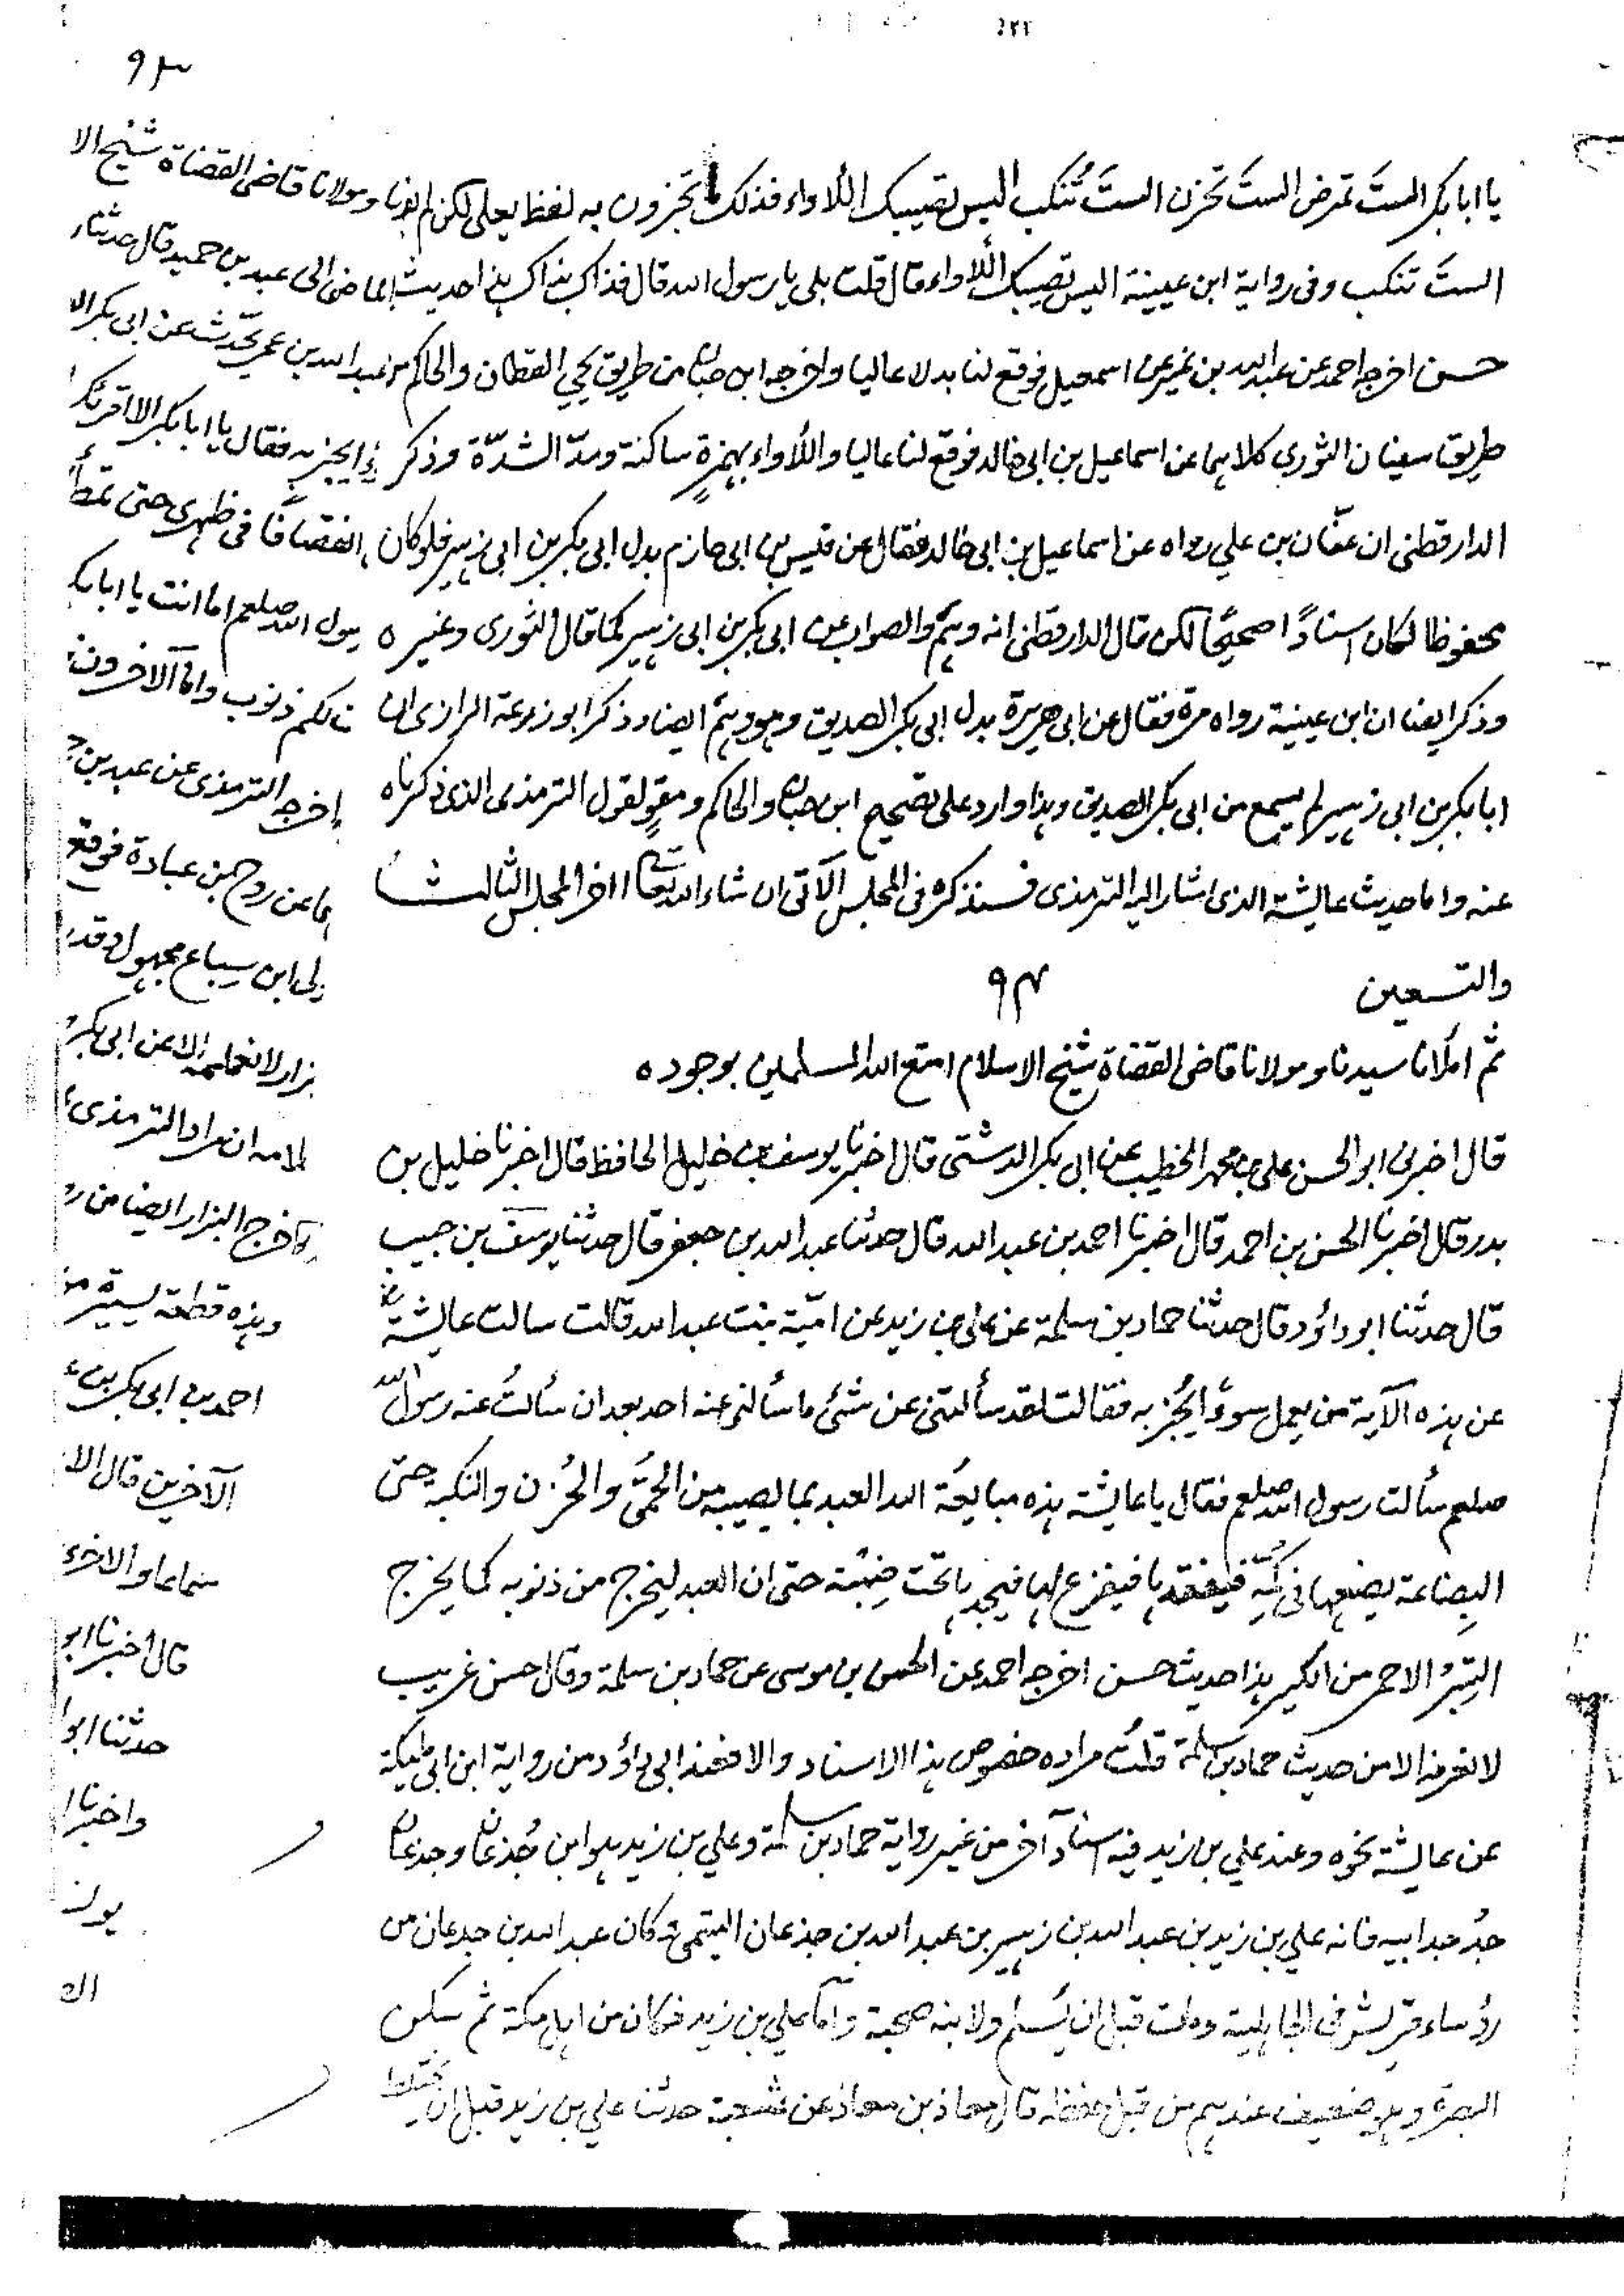 ١٢٢
٩٣
يا ابا بكر الستَ تمرض الستَ تحزن الستَ تُنكب اليس تصيبك اللأواء فذلك ما تجزون به لفظ يعلى لكن
الستَ تنكب وفى رواية ابن عيينة اليس تصيبك اللأواء قال قلت بلى يا رسول الله قال فذاك بذاك هذا حديث
حسن اخرجه احمد عن عبد الله بن نمير عن اسمعيل فوقع لنا بدلا عاليا واخرجه ابن حبان من طريق يحيي القطان والحاكم من
طريق سفيان الثورى كلاهما عن اسماعيل بن ابى خالد فوقع لنا عاليا واللأواء بهمزةٍ ساكنة ومدّ الشدّة وذكر
الدارقطنى ان عثّان بن علي رواه عن اسماعيل بن ابى خالد فقال عن قيس بن ابى حازم بدل ابى بكر بن ابى زهير فلو كان
محفوظا لكان اسنادًا صحيحًا لكن قال الدارقطنى انه وهمٌ والصواب عن ابى بكر بن ابى زهير كما قال الثورى وغيره
وذكر ايضا ان ابن عيينة رواه مرة فقال عن ابى هريرة بدل ابى بكر الصديق وهو وهمٌ ايضا وذكر ابو زرعة الرازى ان
ابا بكر بن ابى زهير لم يسمع من ابى بكر الصديق وهذا وارد على تصحيح ابن حبان والحاكم ومقوٍ لقول الترمذى الذى ذكرناه
عنه واما حديث عايشة الذى اشار اليه الترمذى فسنذكره فى المجلس الآتى ان شاء الله تعالى اخر المجلس الثالث
والتسعين
٩٤
ثم املأنا سيدنا ومولانا قاضى القضاة شيخ الاسلام امتع الله المسلمين بوجوده
قال اخبرنى ابو الحسن على بن محمد الخطيب عن ابى بكر الدشتى قال اخبرنا يوسف بن خليل الحافظ قال اخبرنا خليل بن
بدر قال اخبرنا الحسن بن احمد قال اخبرنا احمد بن عبد الله قال حدثنا عبد الله بن جعفر قال حدثنا يوسف بن حبيب
قال حدثنا ابو داؤد قال حدثنا حماد بن سلمة عن على بن زيد عن اميّة بنت عبد الله قالت سالت عايشة
عن هذه الآية من يعمل سوءً ايُجز به فقالت لقد سألتنى عن شئ ما سألنى عنه احد بعد ان سألتُ عنه رسول الله
صلعم سألت رسول الله صلعم فقال يا عايشة هذه مبايعة الله العبد بما يصيبه من الحمّى والحُزن والنكبه حتى
البِضاعة يضعها فى كمّه فيفقدها فيفزع لها فيجدها تحت ضِبْنه حتى ان العبد ليخرج من ذنوبه كما يخرج
التِبرُ الاحمر من الكير هذا حديث حسن اخرجه احمد عن الحسن بن موسى عن حماد بن سلمة وقال حسن غريب
لا نعرفه الا من حديث حماد بن سلمة قلتُ مراده خصوص هذا الاسناد والا فعند ابى داؤد من رواية ابن ابى مليكة
عن عايشة نحوه وعند علي بن زيد فيه اسناد آخر من غير رواية حماد بن سلمة وعلي بن زيد هو ابن جُدعان وجدعان
جدُ جد ابيه فانه علي بن زيد بن عبد الله بن زهير بن عبد الله بن جذعان التيمي وكان عبد الله بن جدعان من
رؤساء قريش فى الجاهلية ومات قبل ان يُسلم ولابنه صحبة وأما علي بن زيد فكان من اهل مكة ثم سكن
البصرة وهو ضعيف عندهم من قبل حفظه قال معاذ بن معاذ عن شعبة حدثنا علي بن زيد قبل ان يختلط
ومولانا قاضى القضاة شيخ الا
الماضى الى عبد بن حميد قال حدثنا
عبد الله بن عمر يحدّث عن ابى بكر ال
يجز به فقال يا ابا بكر الا اقرئك
انفصامًا فى ظهرى حتى تمطأ
سول الله صلعم اما انت يا ابا بك
لكم ذنوب واما الآخرون
اخرجه الترمذى عن عبد بن
عن روح بن عبادة فوقع
ابن سباع مجهول وقد
بزار لا نعلمه الا عن ابى بكر
ان مراد الترمذى
اخرج البزار ايضا من
وهذه قطعة يسيرة من
احمد بن ابى بكر بن
الآخرين قال ال
سماعا والاخر
قال اخبرنا ابو
حدثنا ابو
واخبرنا